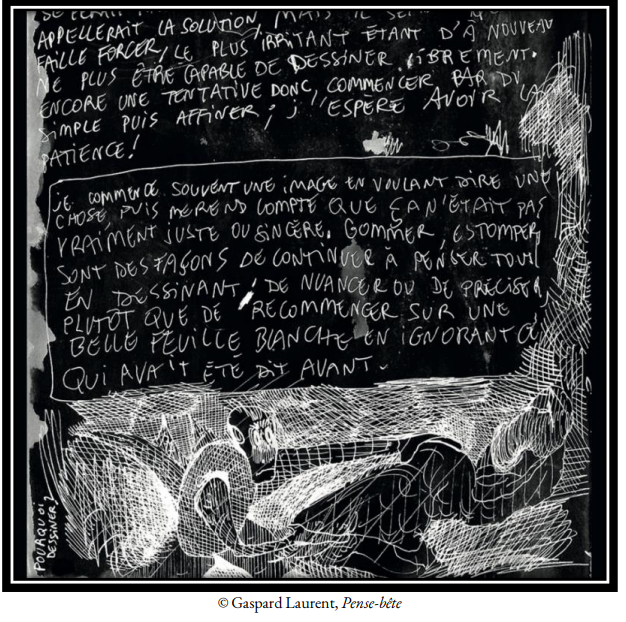 APPELLERAIT LA SOLUTION, MAIS IL
FAILLE FORCER, LE PLUS IRRITANT ÉTANT D'À NOUVEAU
NE PLUS ÊTRE CAPABLE DE DESSINER LIBREMENT.
ENCORE UNE TENTATIVE DONC, COMMENCER PAR DU
SIMPLE PUIS AFFINER ; J'ESPÈRE AVOIR LA
PATIENCE !
JE COMMENCE SOUVENT UNE IMAGE EN VOULANT DIRE UNE
CHOSE, PUIS ME REND COMPTE QUE ÇA N'ÉTAIT PAS
VRAIMENT JUSTE OU SINCÈRE. GOMMER, ESTOMPER
SONT DES FAÇONS DE CONTINUER À PENSER TOUT
EN DESSINANT, DE NUANCER OU DE PRÉCISER
PLUTÔT QUE DE RECOMMENCER SUR UNE
BELLE FEUILLE BLANCHE EN IGNORANT CE
QUI AVAIT ÉTÉ DIT AVANT.
POURQUOI
DESSINER ?
© Gaspard Laurent, Pense-bête